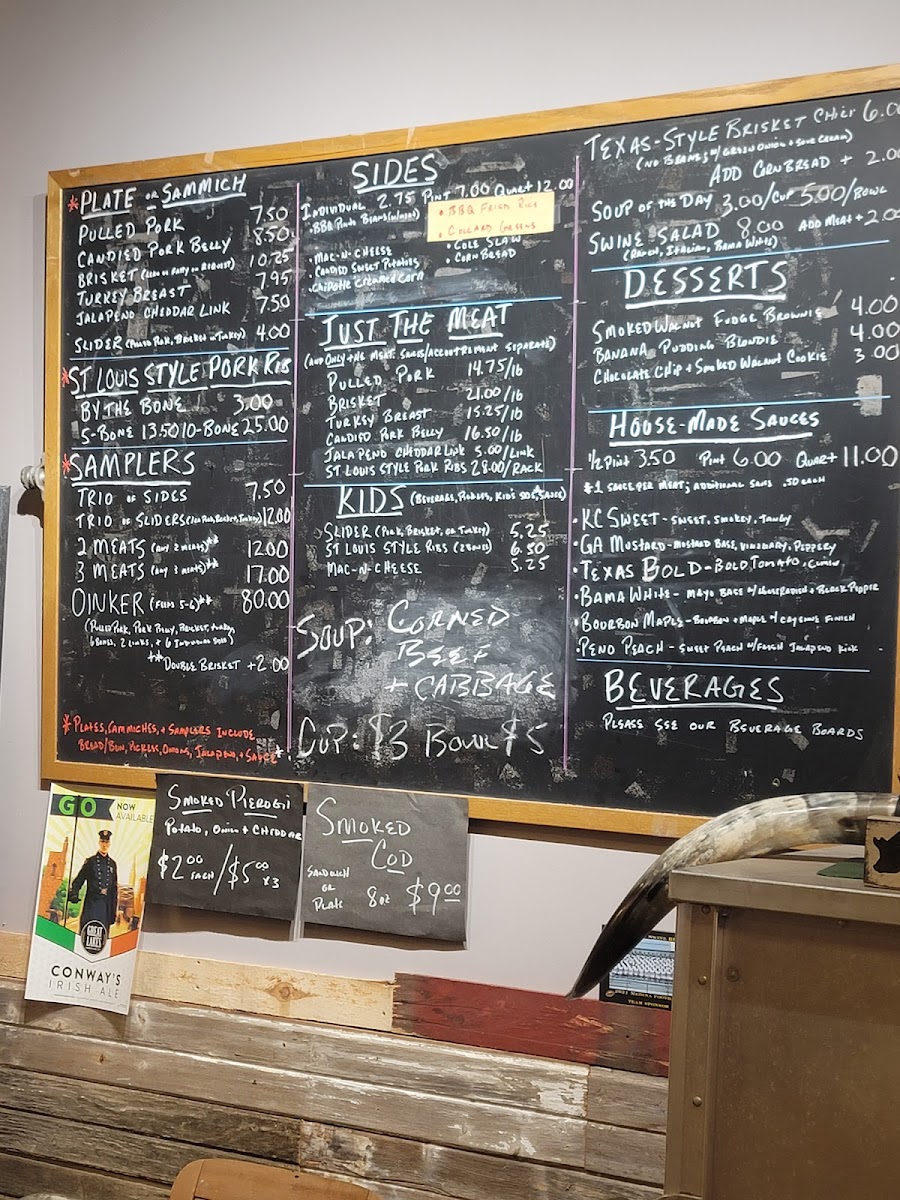 * PLATE OR SAMMICH
PULLED PORK 7.50
CANDIED PORK BELLY 8.50
BRISKET (LEAN OR FATTY ON REQUEST) 10.25
TURKEY BREAST 7.95
JALAPENO CHEDDAR LINK 7.50
SLIDER (PULLED PORK, BRISKET OR TURKEY) 4.00
* ST LOUIS STYLE PORK RIB
BY THE BONE 3.00
5-BONE 13.50 10-BONE 25.00
* SAMPLERS
TRIO OF SIDES 7.50
TRIO OF SLIDERS 12.00
2 MEATS (ANY 2 MEATS)** 12.00
3 MEATS (ANY 3 MEATS)** 17.00
OINKER (FEEDS 5-6)** 80.00
(PULLED PORK, PORK BELLY, BRISKET, TURKEY,
6 BONES, 2 LINKS, + 6 INDIVIDUAL SIDES)
** DOUBLE BRISKET +2.00
* PLATES, SAMMICHES, + SAMPLERS INCLUDE
BREAD/BUN, PICKLES, ONIONS, JALAPENO, + SAUCE *
SIDES
INDIVIDUAL 2.75 PINT 7.00 QUART 12.00
• BBQ PINTO BEANS (W/MEAT)
• BBQ FRIED RICE
• COLLARD GREENS
• MAC-N-CHEESE
• COLE SLAW
• CANDIED SWEET POTATOES
• CORN BREAD
• CHIPOTLE CREAMED CORN
JUST THE MEAT
(AND ONLY THE MEAT. SAUCES/ACCOUTREMENT SEPARATE)
PULLED PORK 14.75/lb
BRISKET 21.00/lb
TURKEY BREAST 15.25/lb
CANDIED PORK BELLY 16.50/lb
JALAPENO CHEDDAR LINK 5.00/LINK
ST LOUIS STYLE PORK RIBS 28.00/RACK
KIDS (BEVERAGE, PICKLES, KID'S SIDE, SAUCE)
SLIDER (PORK, BRISKET, OR TURKEY) 5.25
ST LOUIS STYLE RIBS (2 BONES) 6.50
MAC-N-CHEESE 5.25
SOUP: CORNED
BEEF
+ CABBAGE
CUP: $3 BOWL $5
TEXAS-STYLE BRISKET CHILI 6.0
(NO BEANS; W/ GREEN ONION + SOUR CREAM)
ADD CORNBREAD + 2.00
SOUP OF THE DAY 3.00/CUP 5.00/BOWL
SWINE SALAD 8.00 ADD MEAT + 2.00
(RANCH, ITALIAN, BAMA WHITE)
DESSERTS
SMOKED WALNUT FUDGE BROWNIE 4.00
BANANA PUDDING BLONDIE 4.00
CHOCOLATE CHIP + SMOKED WALNUT COOKIE 3.00
HOUSE-MADE SAUCES
1/2 PINT 3.50 PINT 6.00 QUART 11.00
*1 SAUCE PER MEAT; ADDITIONAL .50 EACH
• KC SWEET - SWEET, SMOKEY, TANGY
• GA MUSTARD - MUSTARD BASE, VINEGARY, PEPPERY
• TEXAS BOLD - BOLD TOMATO, CUMIN
• BAMA WHITE - MAYO BASE W/ HORSERADISH + BLACK PEPPER
• BOURBON MAPLE - BOURBON + MAPLE W/ CAYENNE FINISH
• PENO PEACH - SWEET PEACH W/ FRESH JALAPENO KICK
BEVERAGES
PLEASE SEE OUR BEVERAGE BOARDS
GO NOW
AVAILABLE
GREAT
LAKES
CONWAY'S
IRISH ALE
SMOKED PIEROGI
POTATO, ONION + CHEDDAR
$2.00 EACH / $5.00 x3
SMOKED
COD
SANDWICH
OR
PLATE 8oz $9.00
TEAM SPONSOR